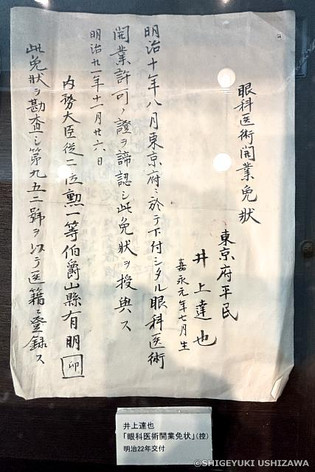 眼科医術開業免状
東京府平民
井上達也
嘉永元年七月生
明治十年八月東京府ニ於テ下付シタル眼科医術
開業許可ノ證ヲ諦認シ此免状ヲ授與ス
明治廿一年十一月廿六日
内務大臣従二位勲一等伯爵山縣有朋 印
此免状ヲ勘査シ第九五二號ヲ以テ医籍ニ登録ス
井上達也
「眼科医術開業免状」(控)
明治22年交付
©SHIGEYUKI USHIZAWA